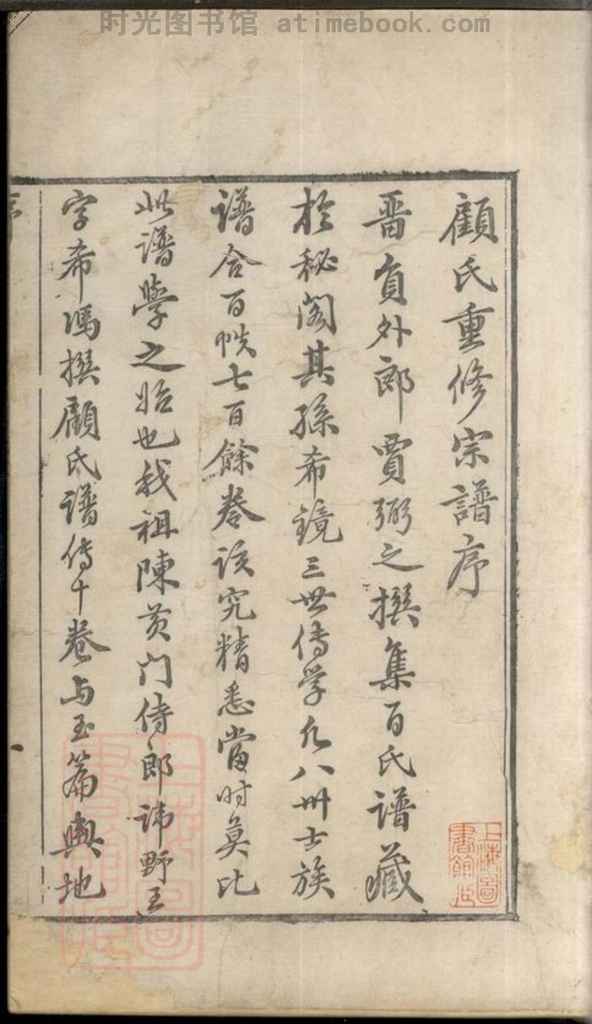 时光图书馆 atimebook.com
顧氏重修宗譜序
晋負外郎賈弼之撰集百氏譜藏
於秘閣其孫希鏡三世传学凢八州士族
譜合百帙七百餘卷該究精悉當时莫比
此譜學之始也我祖陳黄门侍郎諱野王
字希馮撰顧氏譜传十卷与玉篇輿地
上海圖書館藏